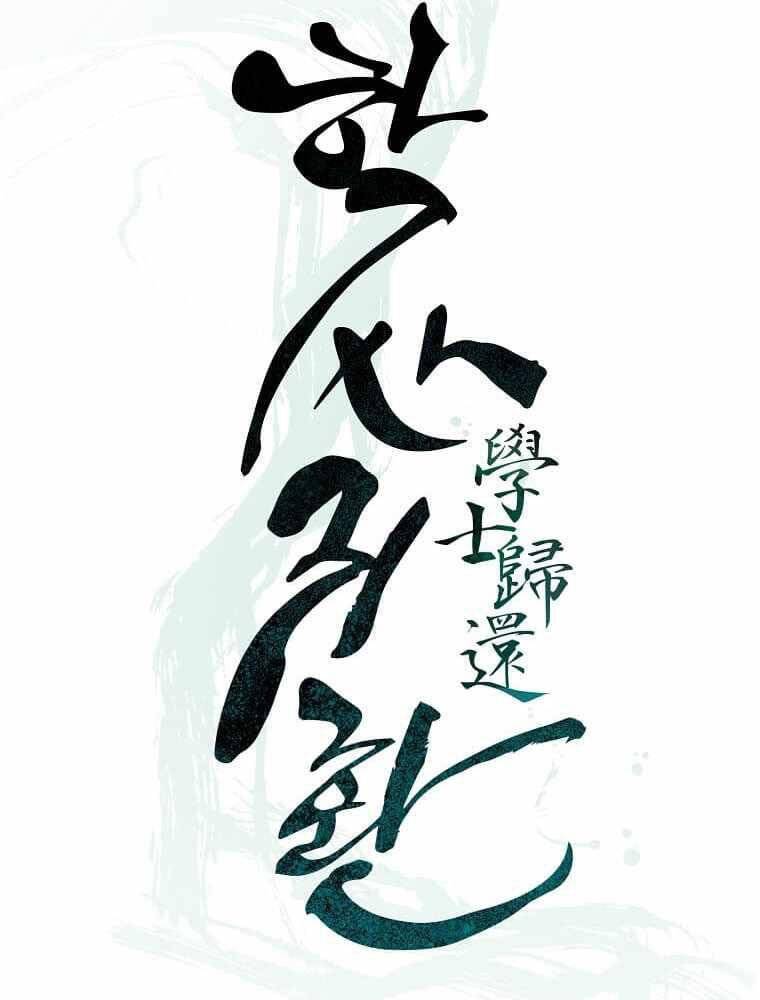 학사귀환
學士歸還